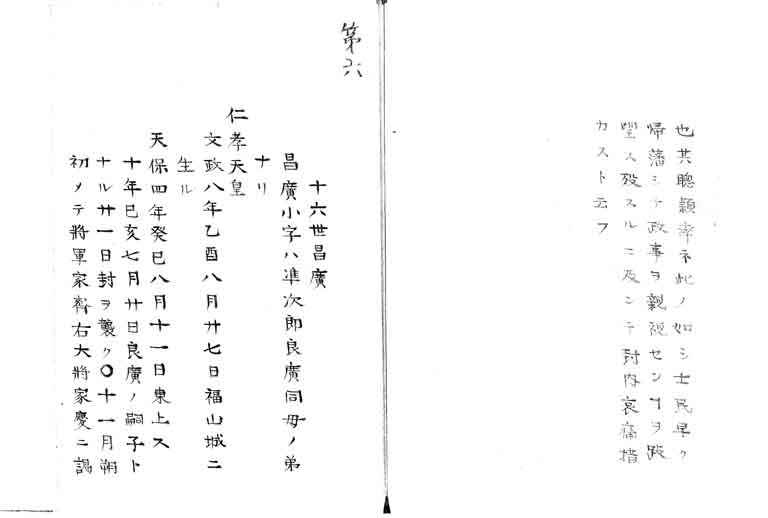 也其聰穎率ネ此ノ如シ士民早ク
帰藩シテ政事ヲ親視センヿヲ跂
望ス殁スルニ及ンテ封内哀痛措
カスト云フ
第六
十六世昌廣
昌廣小字ハ準次郎良廣同母ノ弟
ナリ
仁孝天皇
文政八年乙酉八月廿七日福山城ニ
生ル
天保四年癸巳八月十一日東上ス
十年己亥七月廿日良廣ノ嗣子ト
ナル廿一日封ヲ襲ク〇十一月朔
初メテ將軍家齊右大將家慶ニ謁